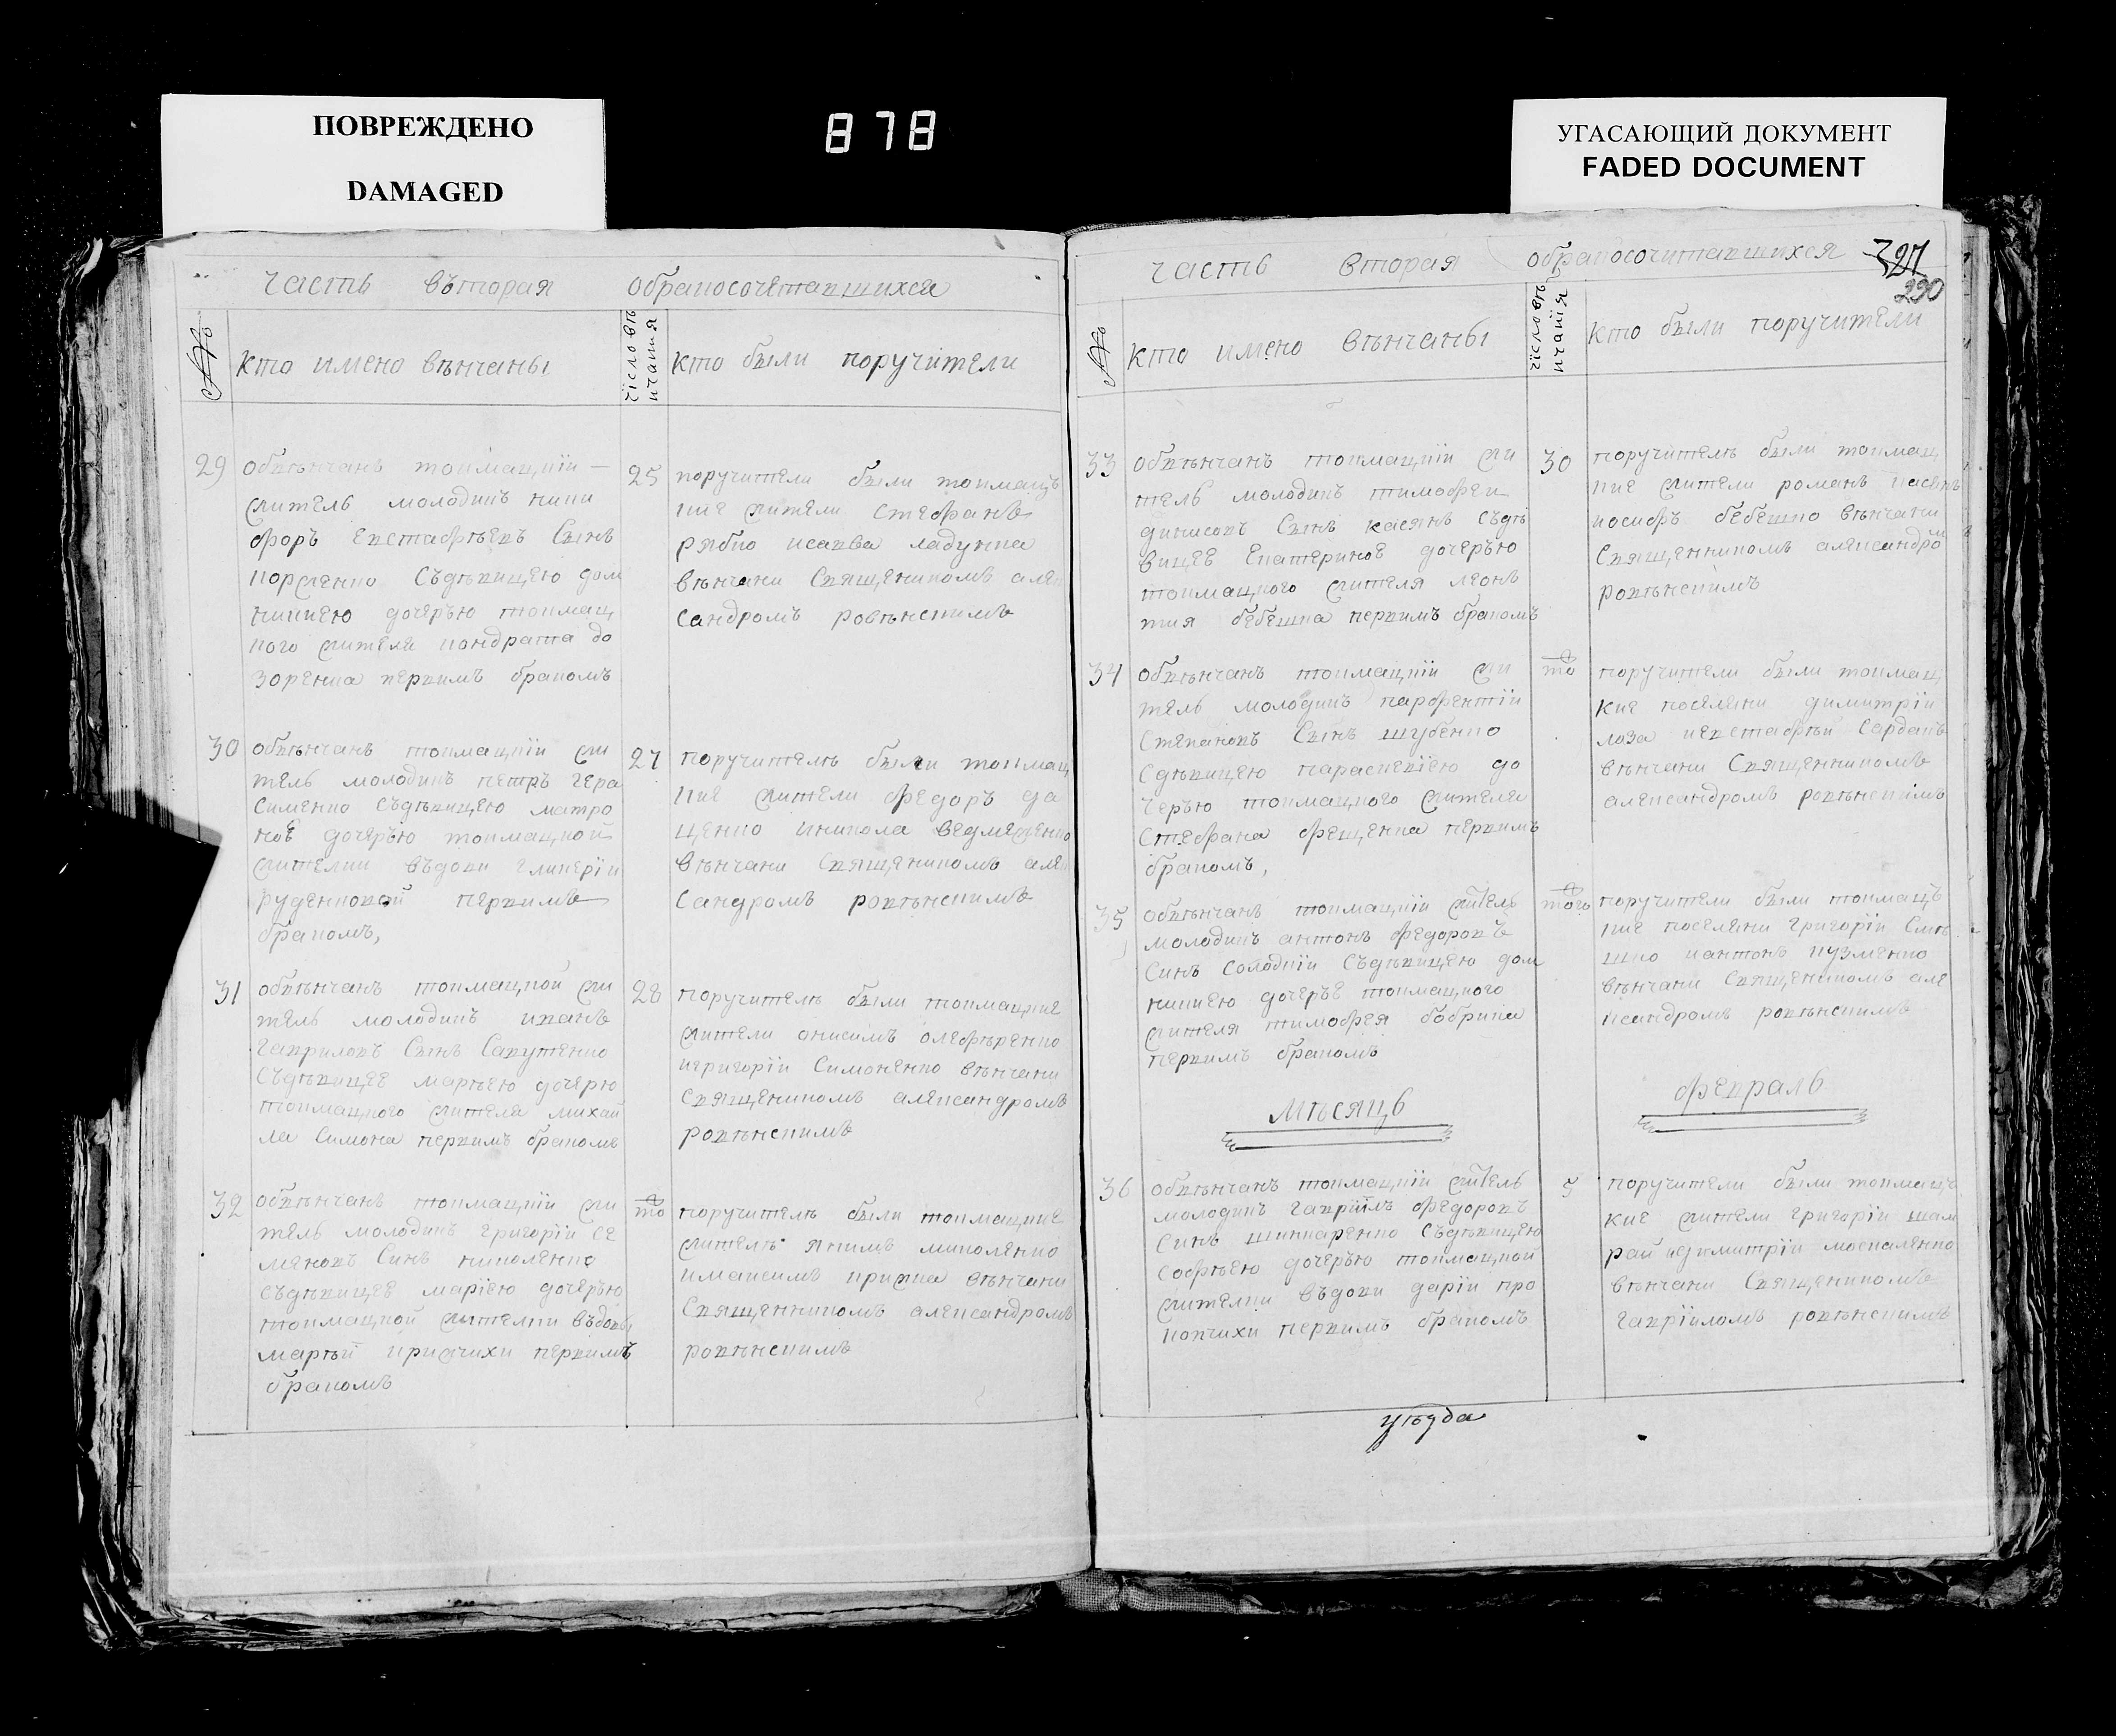 ПОВРЕЖДЕНО
DAMAGED
878
УГАСАЮЩИЙ ДОКУМЕНТ
FADED DOCUMENT
часть въторая обракосочетавшихся
№ кто имено вѣнчаны число вѣнчания кто были поручители
29
обвѣнчанъ токмацкїи
житель молодикъ ники
форъ евстафѣевъ Синъ
Съдѣвицею дом
никиею дочерью токмац
кого жителя кондрата до
зоренка первимъ бракомъ
25
поручители были токмацъ
кие жители Стефанъ
рябко исавва ладунка
вѣнчани Священикомъ алек
сандромъ ровѣнскимъ
30
обвѣнчанъ токмацкїи жи
тель молодикъ петръ гера
сименко Съдѣвицею матро
ноѣ дочерью токмацкой
жителки въдови гликерїи
руденковой первимъ
бракомъ,
27
поручителѣ были токмац
кие жители федоръ
ценко иникола ведмеженко
вѣнчани Священикомъ алек
сандромъ ровѣнскимъ
31
обвѣнчанъ токмацкой жи
тель молодикъ иванъ
гаврилов Синъ Савутенко
Съдѣвицеѣ марѣею дочерю
токмацкого жителя михаи
ла Симона первимъ бракомъ
28
поручителѣ были токмацкие
жители онисимъ олефѣренко
игригорїи Симоненко вѣнчани
Священикомъ александромъ
ровѣнскимъ
32
обвѣнчанъ токмацкїи жи
тель молодикъ григорїи се
меновъ Синъ миколенко
Съдѣвицеѣ марїею дочерью
токмацкой жителки въдовы
марѣи крижчихи первимъ
бракомъ
то
поручителѣ были токмацкие
жителѣ якимъ миколенко
имаксимъ крижка вѣнчани
Священникомъ александромъ
ровѣнскимъ
часть вторая обракосочитавшихся
327
290
№ кто имено вѣнчаны число вѣнчанїя кто были поручители
33
обвѣнчанъ токмацкїи жи
тель молодикъ тимофеи
динисовъ Синъ касянъ Съдѣ
вицеѣ Екатериноѣ дочерью
токмацкого жителя леон
тия бебешка первимъ бракомъ
30
поручителѣ были токмац
кие жители романъ касянъ
иосифъ бебешко вѣнчани
Священникомъ александром
ровѣнскимъ
34
обвѣнчанъ токмацкїи жи
тель молодикъ парфентїи
Степановъ Синъ шубенко
Сдѣвицею параскевїею до
черью токмацкого жителя
Стефана фещенка первимъ
бракомъ,
то
поручители были токмац
кие поселяни димитрїи
лоза иевстафѣи Сарданъ
вѣнчани Священникомъ
александромъ ровѣнскимъ
35
обвѣнчанъ токмацкїи жител
молодикъ антонъ федоровъ
Синъ Солодкїи Съдѣвицею дом
никиею дочерѣѣ токмацкого
жителя тимофея бобрика
первимъ бракомъ
того
поручители были токмацъ
кие поселяни григорїи Смѣ
шко иантонъ кузменко
вѣнчани Священикомъ але
ксандромъ ровѣнскимъ
мѣсяцъ февраль
36
обвѣнчанъ токмацкїи жител
молодикъ гаврїилъ федоровъ
Синъ шинкаренко Съдѣвицею
Софѣею дочерью токмацкой
жителки въдови дарїи про
копчихи первимъ бракомъ
5
поручители были токмацъ
кие жители григорїи шам
рай идимитрїи москаленко
вѣнчани Священикомъ
гаврїиломъ ровѣнскимъ
уѣзда